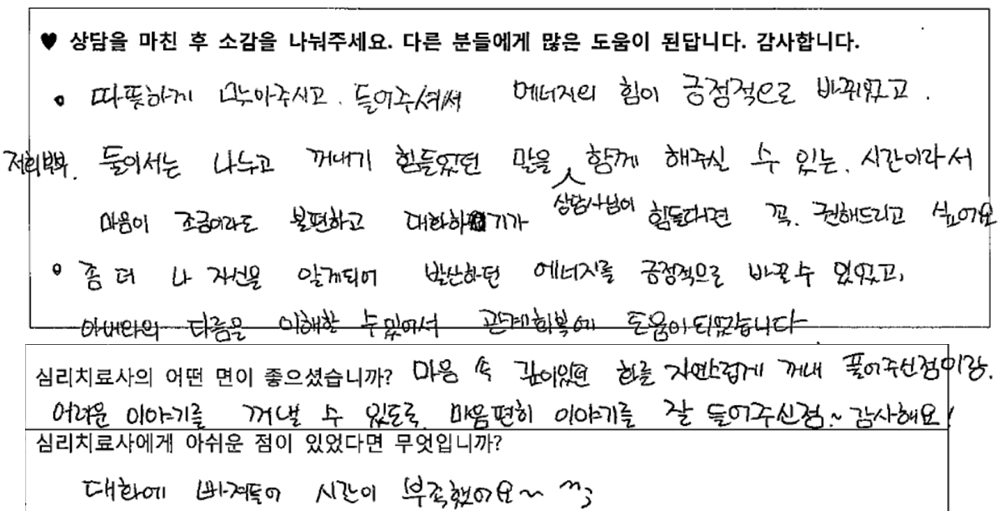 ♥ 상담을 마친 후 소감을 나눠주세요. 다른 분들에게 많은 도움이 된답니다. 감사합니다.
• 따뜻하게 맞아주시고. 들어주셔서 에너지의 힘이 긍정적으로 바뀌었고.
저희부부. 둘이서는 나누고 꺼내기 힘들었던 말을 함께 해주실 수 있는. 시간이라서
상담사님이
마음이 조금이라도 불편하고 대화하기가 힘들다면 꼭. 권해드리고 싶어요
• 좀 더 나 자신을 알게되어 발산하던 에너지를 긍정적으로 바꿀 수 있었고,
아내와의 다름을 이해할 수 있어서 관계회복에 도움이 되었습니다.
심리치료사의 어떤 면이 좋으셨습니까? 마음 속 깊이있던 화를 자연스럽게 꺼내 풀어주신점이랑.
어려운 이야기를 꺼낼 수 있도록 마음편히 이야기를 잘 들어주신점~ 감사해요!
심리치료사에게 아쉬운 점이 있었다면 무엇입니까?
대화에 빠져들어 시간이 부족했어요~ ^^;